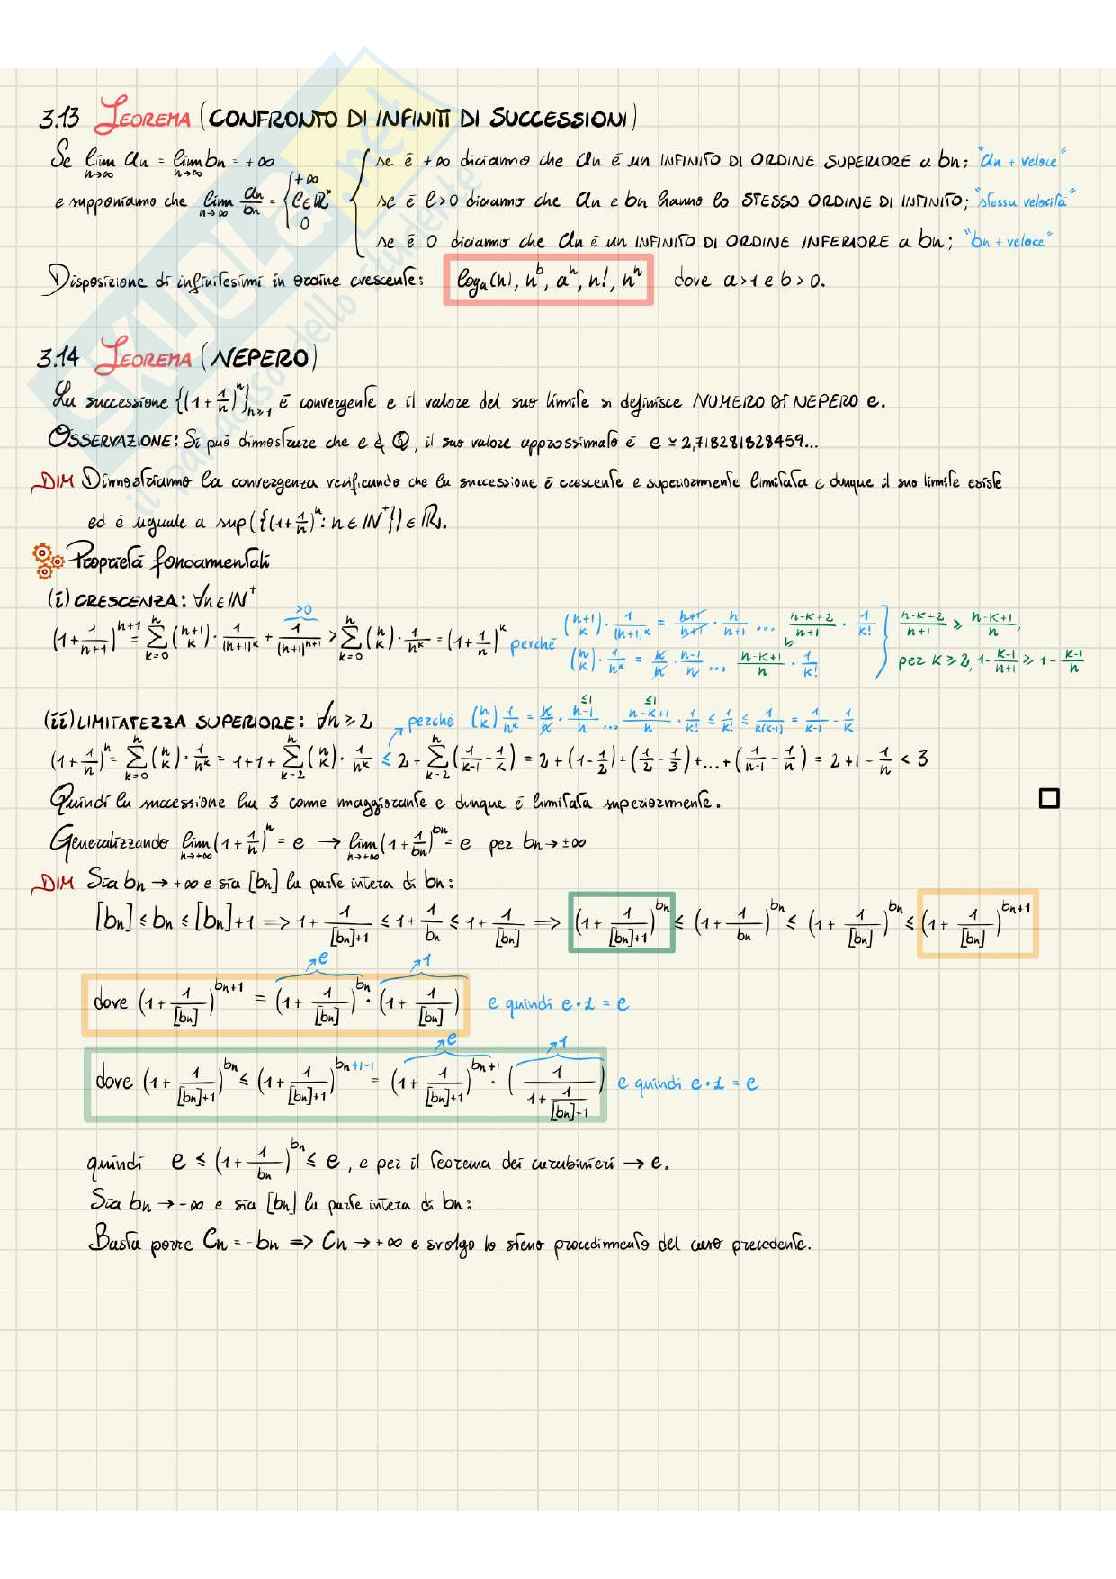 3.13 TEOREMA (CONFRONTO DI INFINITI DI SUCCESSIONI)
Se lim n→∞ an = lim n→∞ bn = +∞
e supponiamo che lim n→∞ an/bn = { +∞ ; ℓ∈ℝ⁺ ; 0
se è +∞ diciamo che an è un INFINITO DI ORDINE SUPERIORE a bn; "an + veloce"
se è ℓ>0 diciamo che an e bn hanno lo STESSO ORDINE DI INFINITO; "stessa velocità"
se è 0 diciamo che an è un INFINITO DI ORDINE INFERIORE a bn; "bn + veloce"
Disposizione di infinitesimi in ordine crescente: logₐ(n), n^b, a^n, n!, n^n dove a>1 e b>0.
3.14 TEOREMA (NEPERO)
La successione {(1+1/n)^n}n≥1 è convergente e il valore del suo limite si definisce NUMERO DI NEPERO e.
OSSERVAZIONE: Si può dimostrare che e∉ℚ, il suo valore approssimato è e≃2,718281828459...
DIM Dimostriamo la convergenza verificando che la successione è crescente e superiormente limitata e dunque il suo limite esiste
ed è uguale a sup({(1+1/n)^n : n∈ℕ⁺}) ∈ℝ.
Proprietà fondamentali
(i) CRESCENZA: ∀n∈ℕ⁺
(1+1/(n+1))^(n+1) = Σ k=0 n (n+1 k)·1/(n+1)^k + 1/(n+1)^(n+1) >0 ≥ Σ k=0 n (n k)·1/n^k = (1+1/n)^k perché
(n+1 k)·1/(n+1)^k = n+1/n+1 · n/n+1 ... n-k+2/n+1 · 1/k!
(n k)·1/n^k = n/n · n-1/n ... n-k+1/n · 1/k!
n-k+2/n+1 ≥ n-k+1/n,
per k≥2, 1-k-1/n+1 ≥ 1-k-1/n
(ii) LIMITATEZZA SUPERIORE: ∀n≥2 perché (n k) 1/n^k = n/n · n-1/n ≤1 ... n-k+1/n ≤1 · 1/k! ≤ 1/k! ≤ 1/k(k-1) = 1/k-1 - 1/k
(1+1/n)^n = Σ k=0 n (n k)·1/n^k = 1+1+ Σ k=2 n (n k)·1/n^k ≤ 2+ Σ k=2 n (1/k-1 - 1/k) = 2+(1-1/2)+(1/2-1/3)+...+(1/n-1 - 1/n) = 2+1-1/n < 3
Quindi la successione ha 3 come maggiorante e dunque è limitata superiormente.
Generalizzando lim n→+∞ (1+1/n)^n = e → lim n→+∞ (1+1/bn)^bn = e per bn→±∞
DIM Sia bn→+∞ e sia [bn] la parte intera di bn:
[bn] ≤ bn ≤ [bn]+1 => 1+1/[bn]+1 ≤ 1+1/bn ≤ 1+1/[bn] => (1+1/[bn]+1)^bn ≤ (1+1/bn)^bn ≤ (1+1/[bn])^bn ≤ (1+1/[bn])^bn+1
dove (1+1/[bn])^bn+1 = (1+1/[bn])^bn ↗e · (1+1/[bn]) ↗1 e quindi e·1 = e
dove (1+1/[bn]+1)^bn ≤ (1+1/[bn]+1)^bn+1-1 = (1+1/[bn]+1)^bn+1 ↗e · (1/1+1/[bn]+1) ↗1 e quindi e·1 = e
quindi e ≤ (1+1/bn)^bn ≤ e, e per il Teorema dei carabinieri → e.
Sia bn→-∞ e sia [bn] la parte intera di bn:
Basta porre Cn = -bn => Cn→+∞ e svolgo lo stesso procedimento del caso precedente.